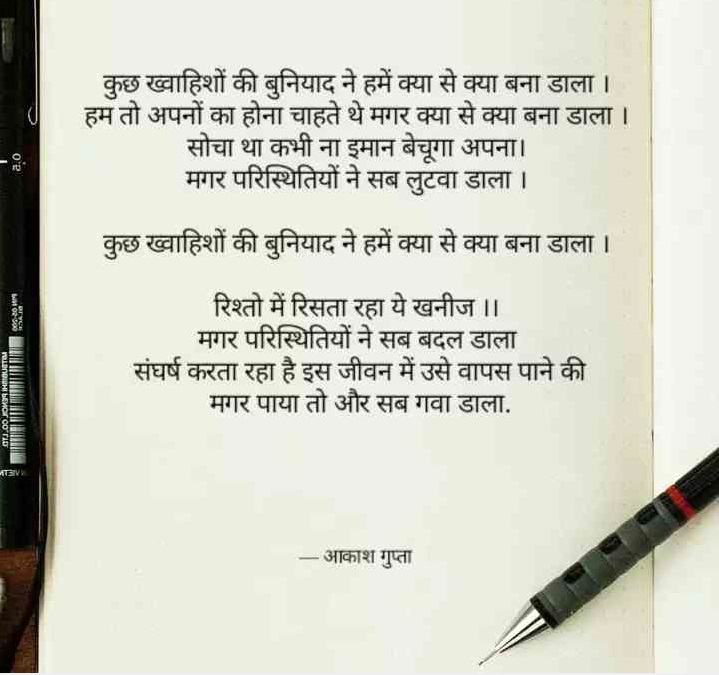 कुछ ख्वाहिशों की बुनियाद ने हमें क्या से क्या बना डाला ।
हम तो अपनों का होना चाहते थे मगर क्या से क्या बना डाला ।
सोचा था कभी ना इमान बेचूगा अपना।
मगर परिस्थितियों ने सब लुटवा डाला ।
कुछ ख्वाहिशों की बुनियाद ने हमें क्या से क्या बना डाला ।
रिश्तो में रिसता रहा ये खनीज ।।
मगर परिस्थितियों ने सब बदल डाला
संघर्ष करता रहा है इस जीवन में उसे वापस पाने की
मगर पाया तो और सब गवा डाला.
— आकाश गुप्ता
0.5
MITSUBISHI PENCIL CO.,LTD